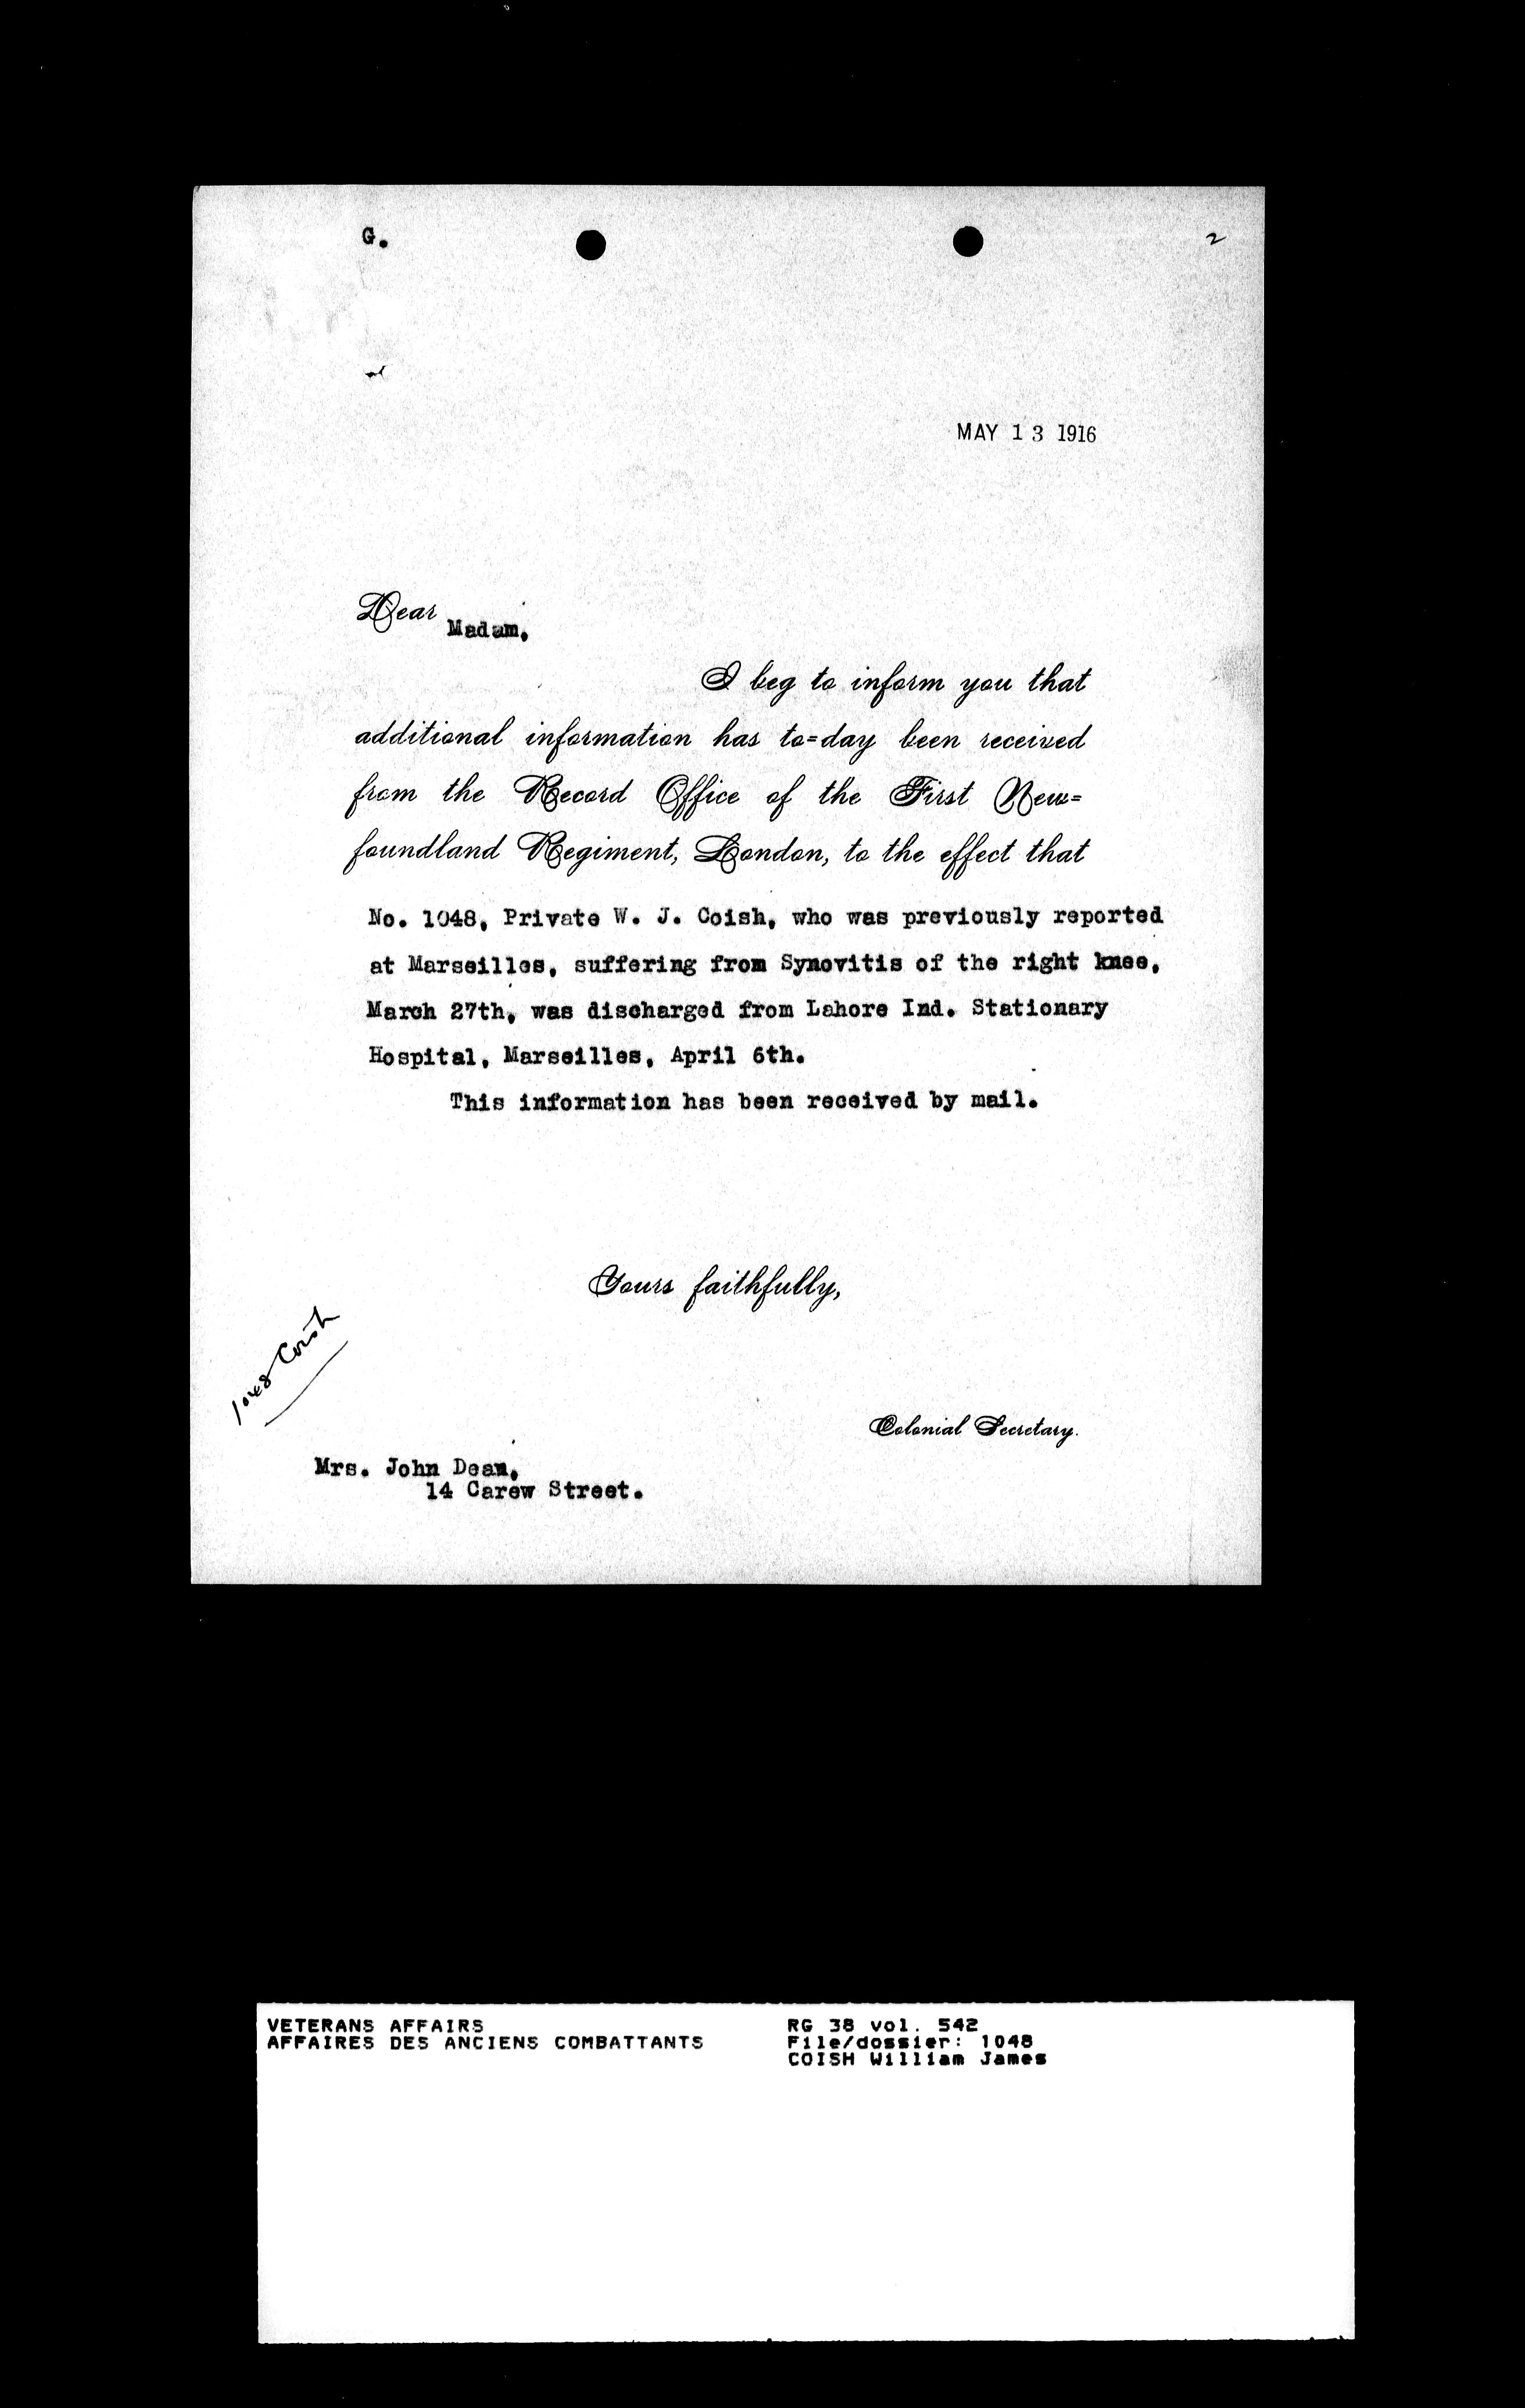 G.
2
MAY 13 1916
Dear
Madam,
I beg to inform you that
additional information has to=day been received
from the Record Office of the First New=
foundland Regiment, London, to the effect that
No. 1048, Private W. J. Coish, who was previously reported
at Marseilles, suffering from Synovitis of the right knee,
March 27th, was discharged from Lahore Ind. Stationary
Hospital, Marseilles, April 6th.
This information has been received by mail.
Yours faithfully,
1048 Coish
Colonial Secretary.
Mrs. John Dean,
14 Carew Street.
VETERANS AFFAIRS
AFFAIRES DES ANCIENS COMBATTANTS
RG 38 vol. 542
File/dossier: 1048
COISH William James